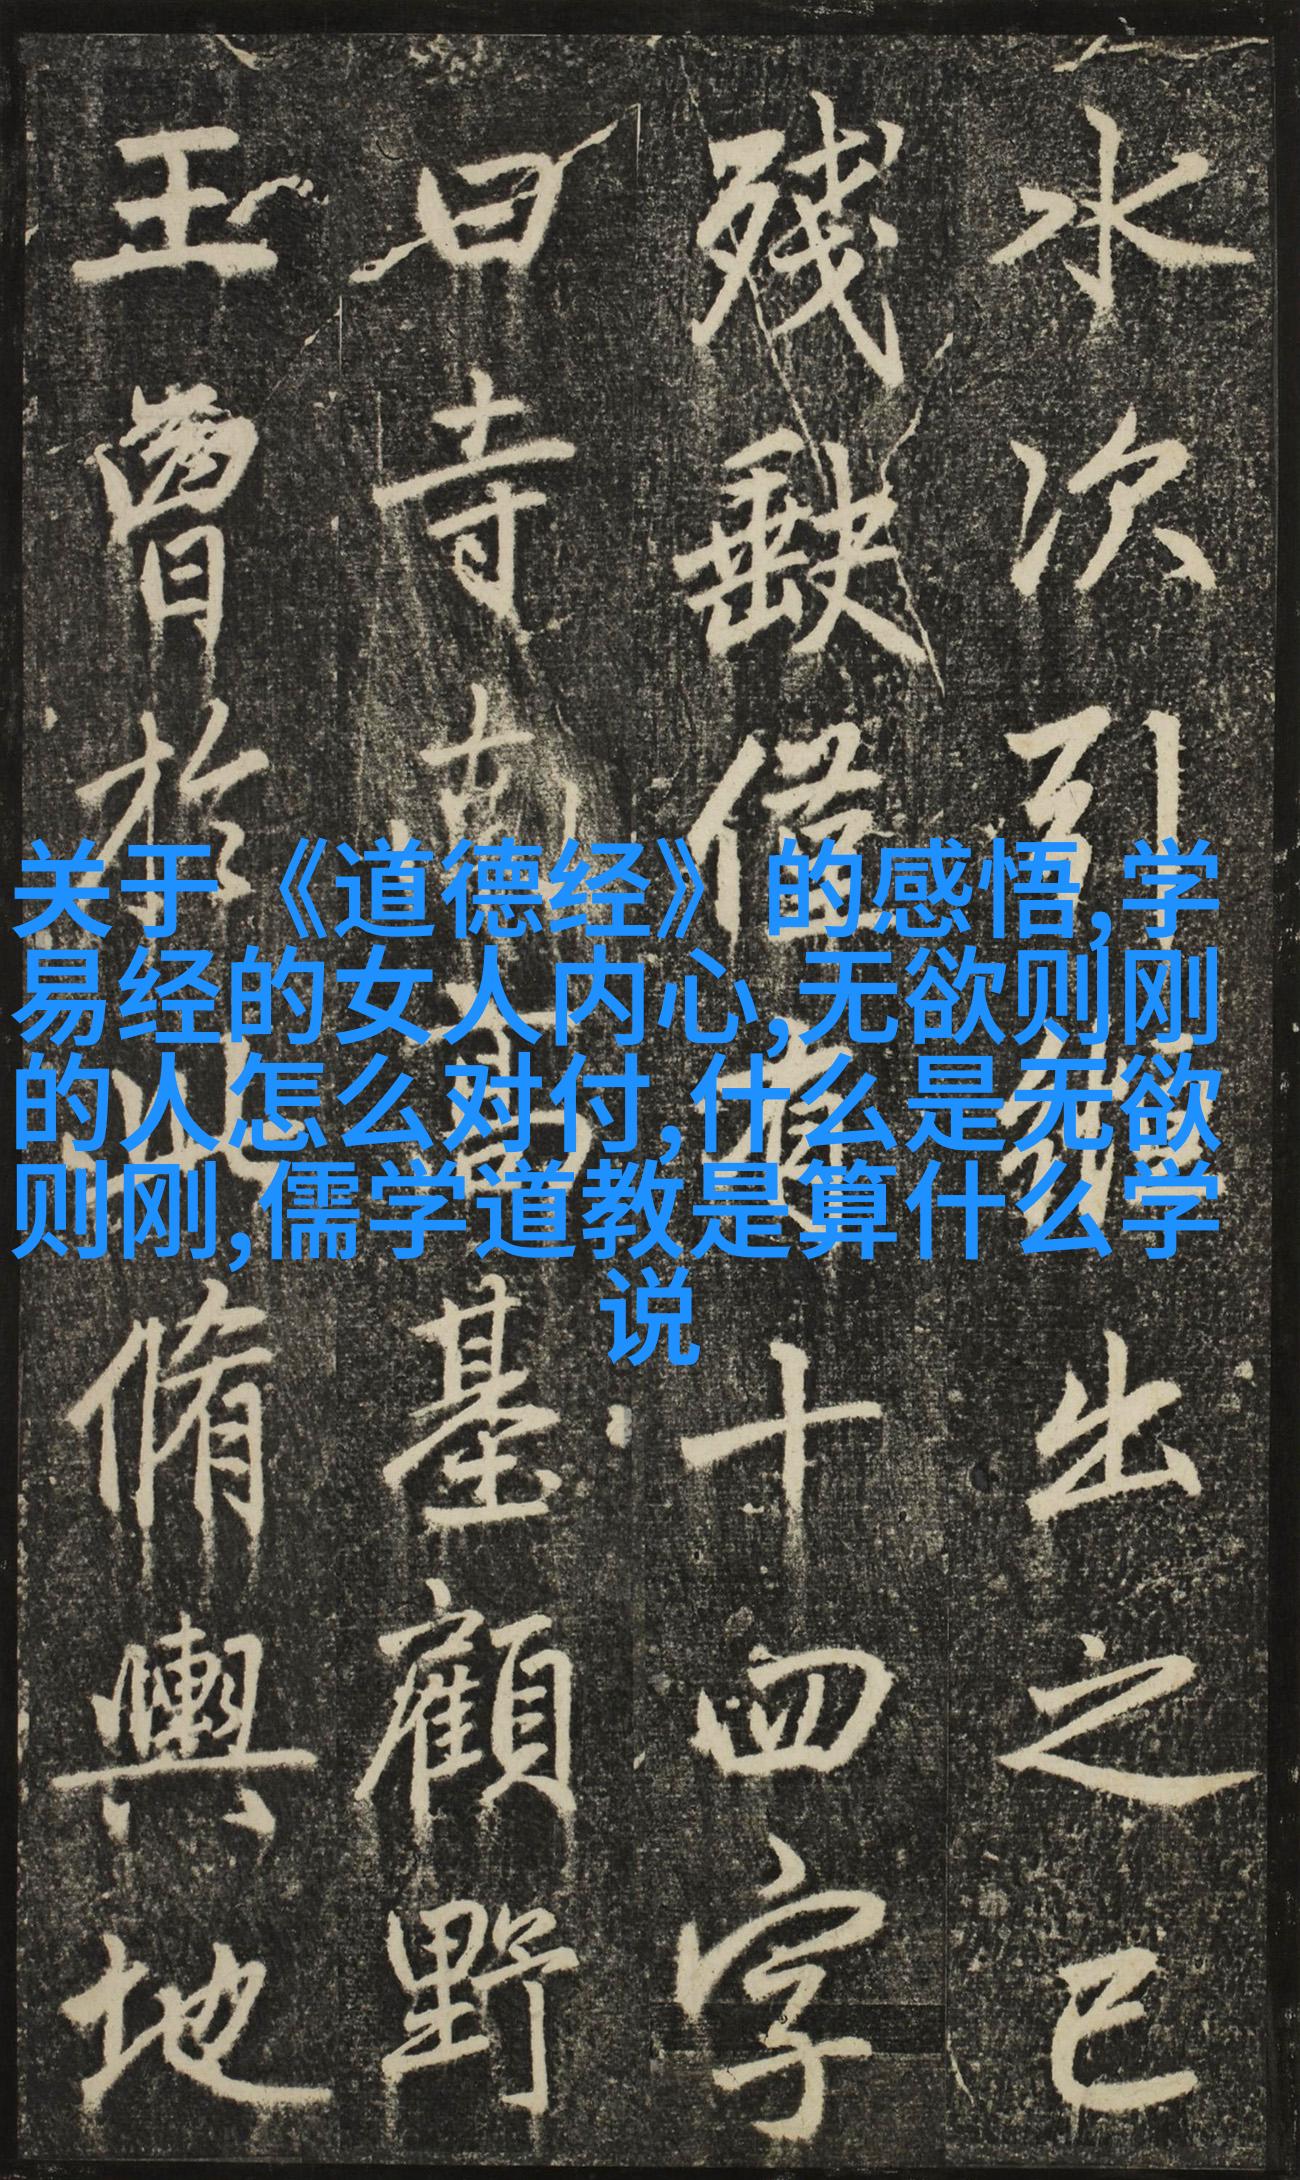 关于《道德经》的感悟,学
易经的女人内心,无欲则刚
的人怎么对付,什么是无欲
则刚,儒学道教是算什么学
说
水次引出之已
殘缺僅存十四字
曰寺南高基顧野
王曾於此脩輿地